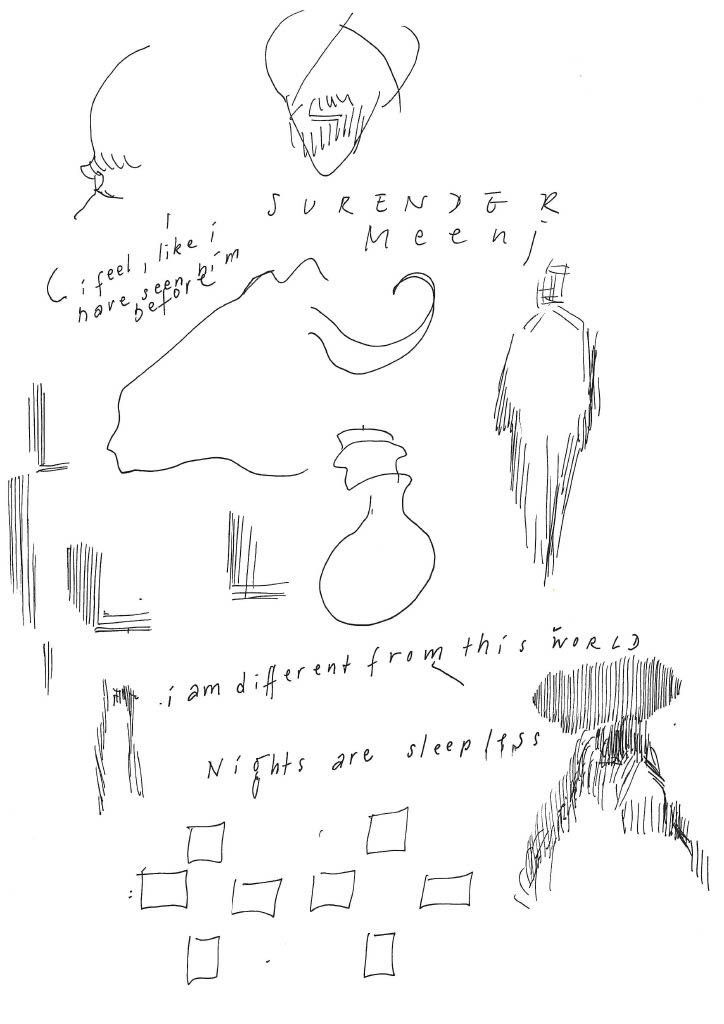 SURENDER
Meenj
( i feel, like i
have seen him
before
i am different from this WORLD
Nights are sleepless